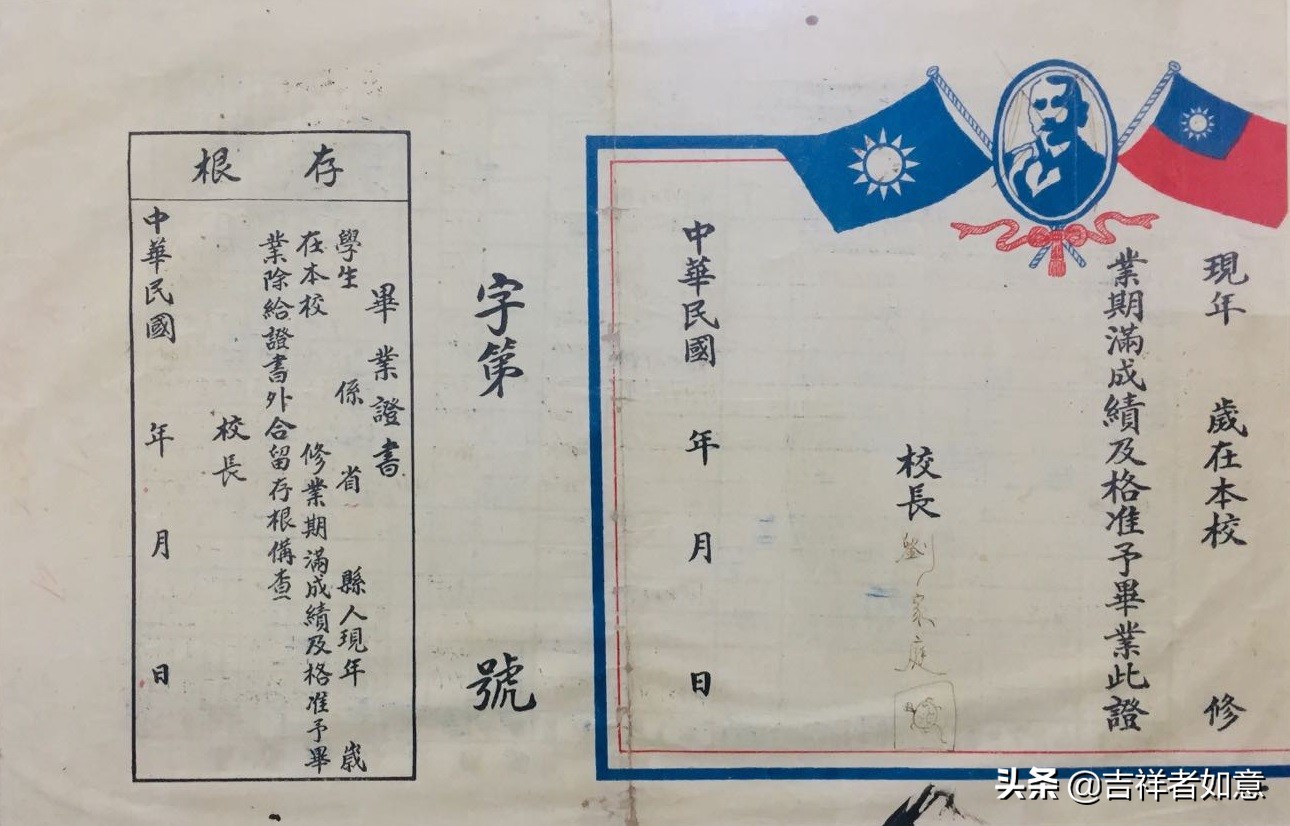 現年 歲在本校 修
業期滿成績及格准予畢業此證
校長 劉家庭
中華民國 年 月 日
字第 號
存根
畢業證書
學生 係 省 縣人現年 歲
在本校 修業期滿成績及格准予畢
業除給證書外合留存根備查
校長
中華民國 年 月 日
头条 @吉祥者如意